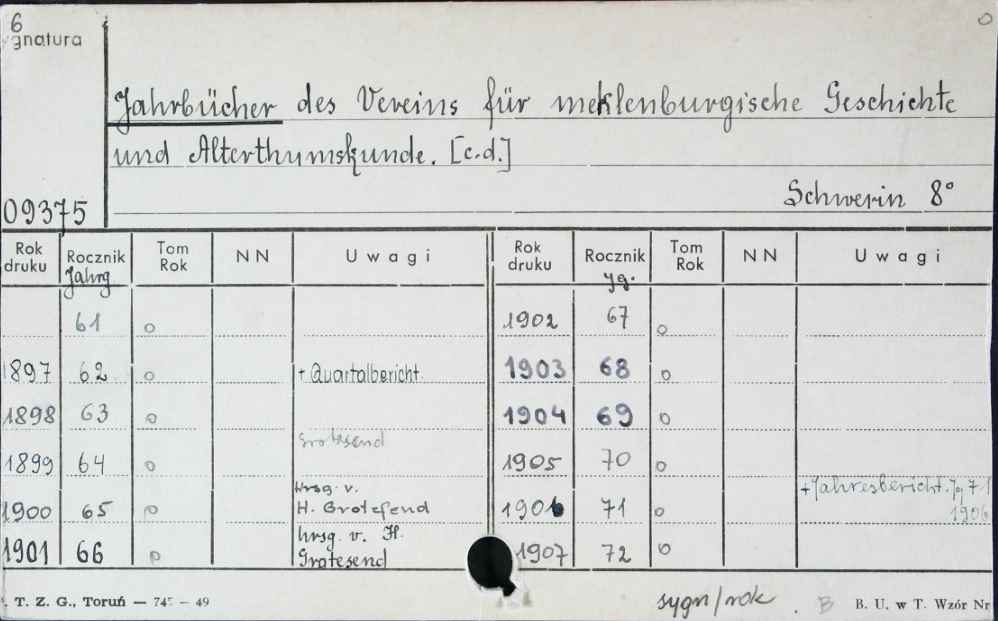 6
gnatura
Jahrbücher des Vereins für meklenburgische Geschichte
und Alterthumskunde. [c.d.]
09375
Schwerin 8°
Rok druku Rocznik Tom Rok NN Uwagi Rok druku Rocznik Tom Rok NN Uwagi
Jahrg Jg.
61 o 1902 67 o
1897 62 o + Quartalbericht 1903 68 o
1898 63 o 1904 69 o
Grotesend
1899 64 o 1905 70 o
Hrsg. v. + Jahresbericht. Jg 71
1900 65 o H. Grotefend 1906 71 o 1906
hrsg. v. H.
1901 66 o Grotesend 1907 72 o
T. Z. G., Toruń — 745 — 49 sygn/rok . B B. U. w T. Wzór Nr